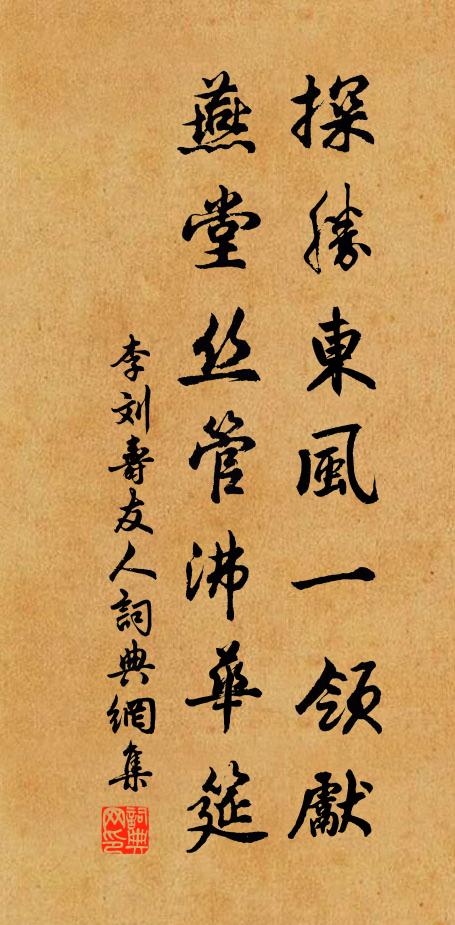 探勝東風一領獻
燕堂丝管沸華筵
李刘壽友人詞典網集
詞典网印